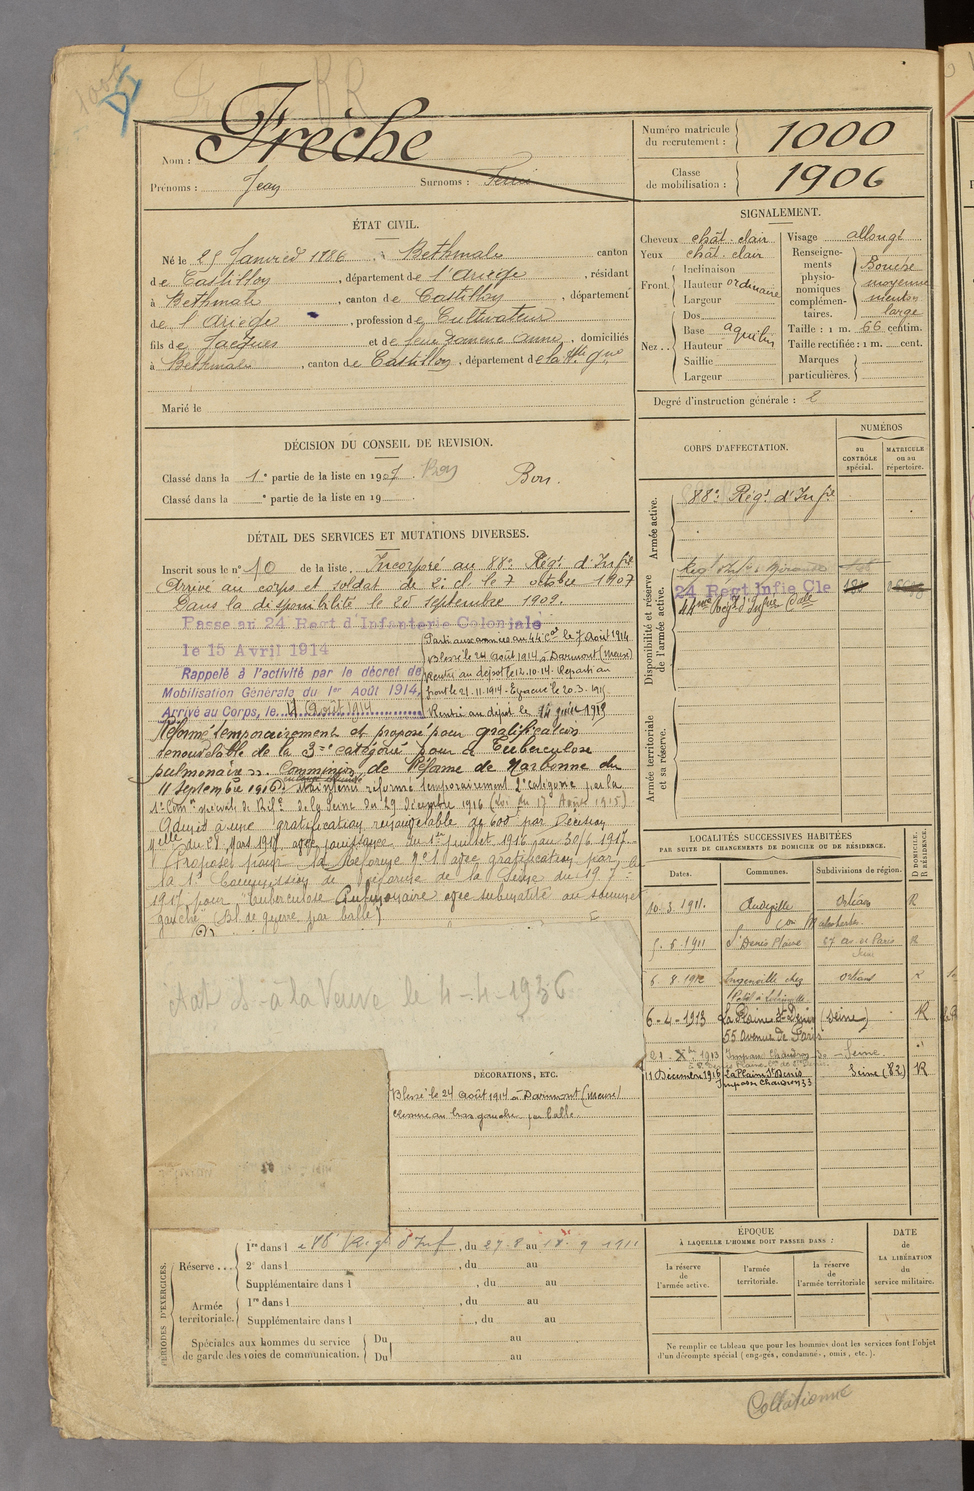 Frèche
Nom :
Prénoms : Jean
Surnoms :
Numéro matricule du recrutement : 1000
Classe de mobilisation : 1906
ÉTAT CIVIL.
Né le 25 Janvier 1886, à Bethmale canton
de Castillon, département de l'Ariège, résidant
à Bethmale, canton de Castillon, département
de l'Ariège, profession de Cultivateur
fils de Jacques et de feue Domenc Anne, domiciliés
à Bethmale, canton de Castillon, département de la Hte Gne
Marié le
SIGNALEMENT.
Cheveux chât. clair
Yeux chât. clair
Front. Inclinaison
Hauteur ordinaire
Largeur
Nez. Dos
Base aquilin
Hauteur
Saillie
Largeur
Visage allongé
Renseignements physionomiques complémentaires. Bouche moyenne menton large
Taille : 1 m. 66 centim.
Taille rectifiée : 1 m. cent.
Marques particulières.
Degré d'instruction générale : 2
DÉCISION DU CONSEIL DE REVISION.
Classé dans la 1e partie de la liste en 1907. Bon Bon.
Classé dans la e partie de la liste en 19
DÉTAIL DES SERVICES ET MUTATIONS DIVERSES.
Inscrit sous le n° 10 de la liste. Incorporé au 88e Régt d'Infie
Arrivé au corps et soldat de 2e cl. le 7 octobre 1907
Dans la disponibilité le 25 septembre 1909.
Passe au 24 Regt d'Infanterie Coloniale
le 15 Avril 1914
Rappelé à l'activité par le décret de
Mobilisation Générale du 1er Août 1914,
Arrivé au Corps, le 4 Août 1914
Parti aux armées au 44e Cal le 7 Août 1914
Blessé le 24 Août 1914 à Darmont (Meuse)
Rentré au dépôt le 12.10.14. Reparti au
front le 21.11.1914. Evacué le 20.3.1915.
Rentré au dépôt le 14 1915
Réformé temporairement et proposé pour gratification
renouvelable de la 3me catégorie pour "Tuberculose
pulmonaire". Commission de Réforme de Narbonne du
11 septembre 1916. Maintenu réformé temporairement 2e catégorie par la
1e Comon spéciale de Réfe de la Seine du 29 décembre 1916 (Loi du 17 Août 1915)
Admis à une gratification renouvelable de 600 par Décision
Mielle du 28 Mars 1917, avec jouissance du 1er juillet 1916 au 30/6 1917.
Proposé pour la Réforme n° 1 avec gratification par
la 1e Commission de Réforme de la Seine du 19 7
1917 pour "Tuberculose Pulmonaire avec submatité au sommet
gauche" (Bl. de guerre par balle)
à la Veuve le 4-4-1936
CORPS D'AFFECTATION.
NUMÉROS
au CONTRÔLE spécial.
MATRICULE ou au répertoire.
Armée active.
88e Régt d'Infie
Disponibilité et réserve de l'armée active.
24 Regt Infie Cle
44me Regt d'Infrie Cale
Armée territoriale et sa réserve.
LOCALITÉS SUCCESSIVES HABITÉES
PAR SUITE DE CHANGEMENTS DE DOMICILE OU DE RÉSIDENCE.
Dates.
Communes.
Subdivisions de région.
D DOMICILE, R RÉSIDENCE.
10.3.1911. Audeville Orléans R
con Malesherbes
5.6.1911 St Denis Plaine Seine R
6.8.1912 Orléans
6-4-1913 La Plaine St Denis (Seine) R
55 avenue de Paris
21 Xbre 1913 Impasse Chaudron Seine
11 Décembre 1916 La Plaine St Denis Seine (B2) R
Impasse Chaudron 33
DÉCORATIONS, ETC.
Blessé le 24 Août 1914 à Darmont (Meuse)
blessure au bras gauche par balle
PÉRIODES D'EXERCICES.
Réserve
1re dans l e 88 Régt d'Inf, du 27.8 au 18.9 1911
2e dans l , du au
Supplémentaire dans l , du au
Armée territoriale.
1re dans l , du au
Supplémentaire dans l , du au
Spéciales aux hommes du service de garde des voies de communication.
Du au
Du au
ÉPOQUE
À LAQUELLE L'HOMME DOIT PASSER DANS :
la réserve de l'armée active.
l'armée territoriale.
la réserve de l'armée territoriale
DATE de LA LIBÉRATION du service militaire.
Ne remplir ce tableau que pour les hommes dont les services font l'objet
d'un décompte spécial (engagés, condamnés, omis, etc.).
Collationné